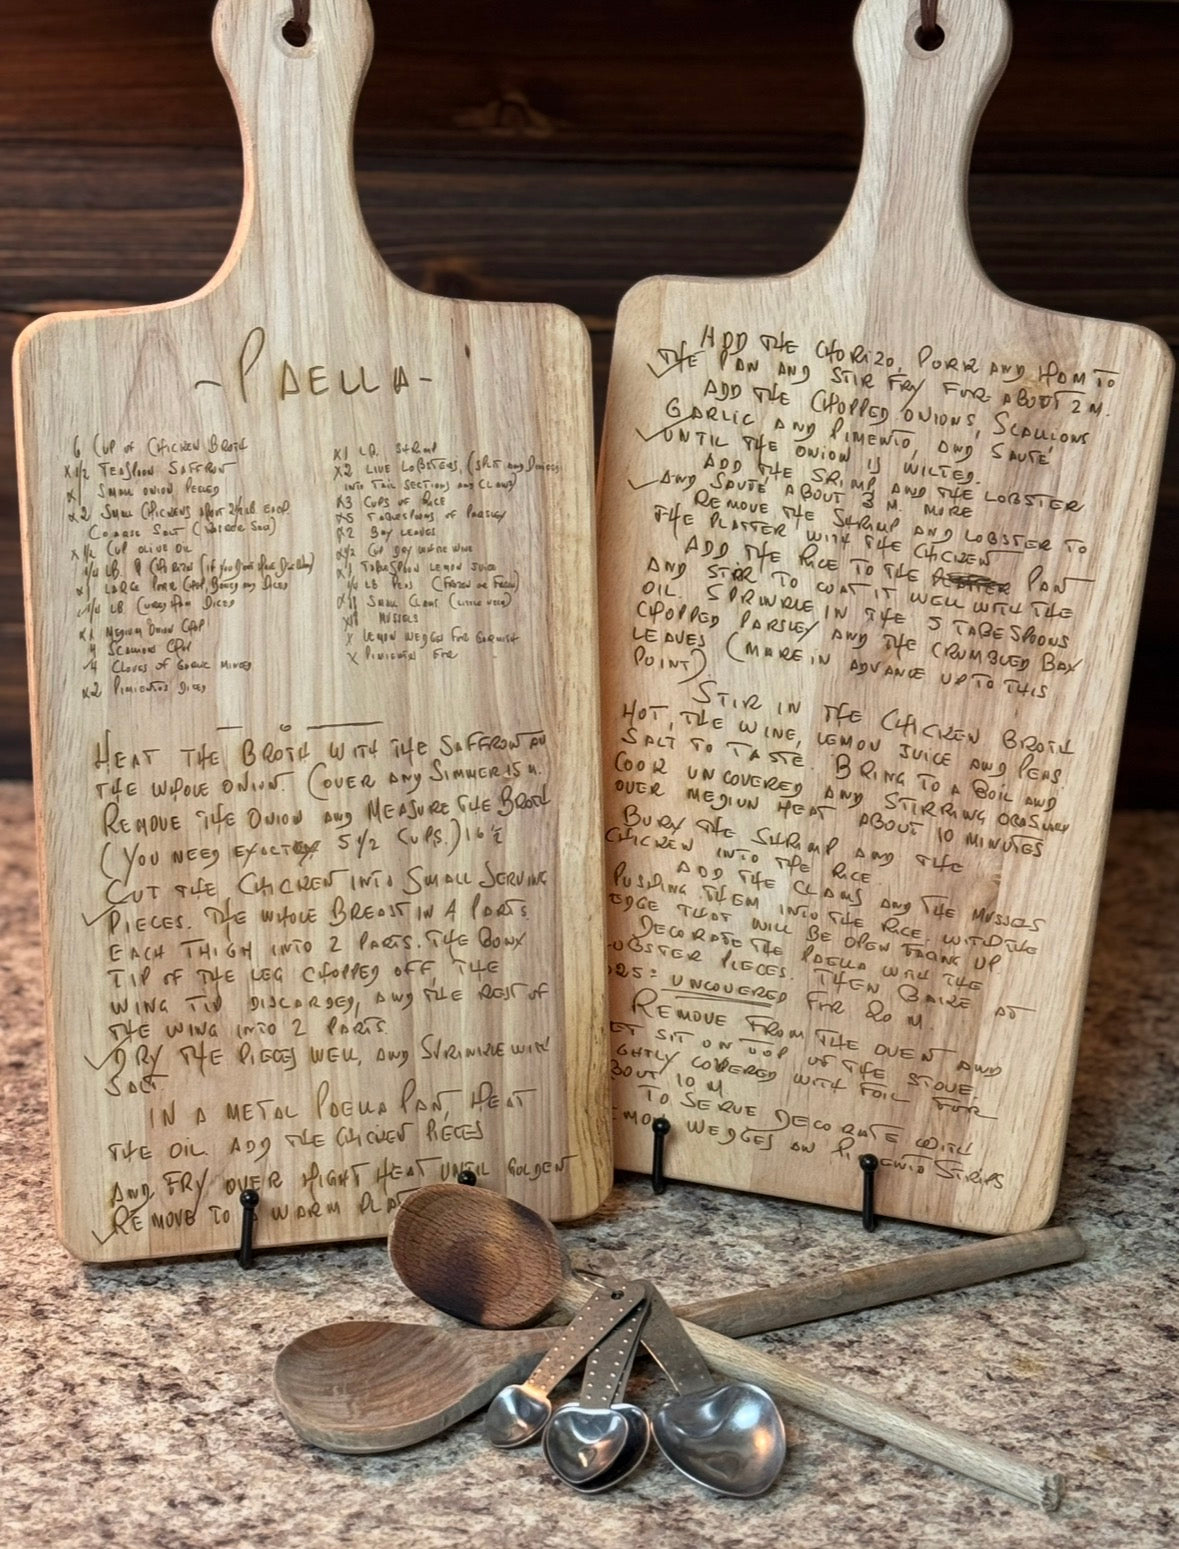 - PAELLA -
6 CUP OF CHICKEN BROTH
X 1/2 TEASPOON SAFFRON
X 1 SMALL ONION PEELED
X 2 SMALL CHICKENS ABOUT 2 1/2 LB EACH
COARSE SALT
X 1/2 CUP OLIVE OIL
1/4 LB.
X 1 LARGE PORK CHOP, BONED AND DICED
1/4 LB CURED HAM DICED
X 1 MEDIUM ONION CHOP
4 SCALLION CHOP
4 CLOVES OF GARLIC MINCED
X 2 PIMIENTOS DICED
X 1 LB. SHRIMP
X 2 LIVE LOBSTERS, (SPLIT AND DIVIDED
INTO TAIL SECTIONS AND CLAWS)
X 3 CUPS OF RICE
X 5 TABLESPOONS OF PARSLEY
X 2 BAY LEAVES
X 1/2 CUP DRY WHITE WINE
X 1 TABLESPOON LEMON JUICE
1/4 LB PEAS (FROZEN OR FRESH)
SMALL CLAMS (LITTLE NECK)
MUSSELS
X LEMON WEDGES FOR GARNISH
X PIMIENTOS FOR
HEAT THE BROTH WITH THE SAFFRON AND
THE WHOLE ONION. COVER AND SIMMER 15 M.
REMOVE THE ONION AND MEASURE THE BROTH
(YOU NEED EXACTLY 5 1/2 CUPS.)
CUT THE CHICKEN INTO SMALL SERVING
PIECES. THE WHOLE BREAST IN 4 PARTS
EACH THIGH INTO 2 PARTS. THE BONY
TIP OF THE LEG CHOPPED OFF, THE
WING TIP DISCARDED, AND THE REST OF
THE WING INTO 2 PARTS.
DRY THE PIECES WELL, AND SPRINKLE WITH
SALT.
IN A METAL PAELLA PAN, HEAT
THE OIL. ADD THE CHICKEN PIECES
AND FRY OVER HIGHT HEAT UNTIL GOLDENT
REMOVE TO A WARM
ADD THE CHORIZO, PORK AND HAM TO
THE PAN AND STIR FRY FOR ABOUT 2 M.
ADD THE CHOPPED ONIONS, SCALLIONS
GARLIC AND PIMENTO, AND SAUTÉ
UNTIL THE ONION IS WILTED.
ADD THE SRIMP AND THE LOBSTER
AND SAUTÉ ABOUT 3 M. MORE
REMOVE THE SHRIMP AND LOBSTER TO
THE PLATTER WITH THE CHICKEN
ADD THE RICE TO THE PAN
AND STIR TO COAT IT WELL WITH THE
OIL. SPRINKLE IN THE 5 TABESPOONS
CHOPPED PARSLEY AND THE CRUMBLED BAY
LEAVES (MAKE IN ADVANCE UP TO THIS
POINT)
STIR IN THE CHICKEN BROTH
HOT, THE WINE, LEMON JUICE AND PEAS.
SALT TO TASTE. BRING TO A BOIL AND
COOK UNCOVERED AND STIRRING
OVER MEDIUN HEAT ABOUT 10 MINUTES
BURY THE SHRIMP AND THE
CHICKEN INTO THE RICE.
ADD THE CLAMS AND THE MUSSELS
PUSHING THEM INTO THE RICE, WITH THE
EDGE THAT WILL BE OPEN FACING UP
DECORATE THE PAELLA WITH THE
LOBSTER PIECES. THEN BAKE AT
325° UNCOVERED FOR 20 M.
REMOVE FROM THE OVEN AND
ET SIT ON TOP OF THE STOVE
GHTLY COVERED WITH FOIL FOR
BOUT 10 M
TO SERVE DECORATE WITH
EMON WEDGES AN PIMENTO STRIPS